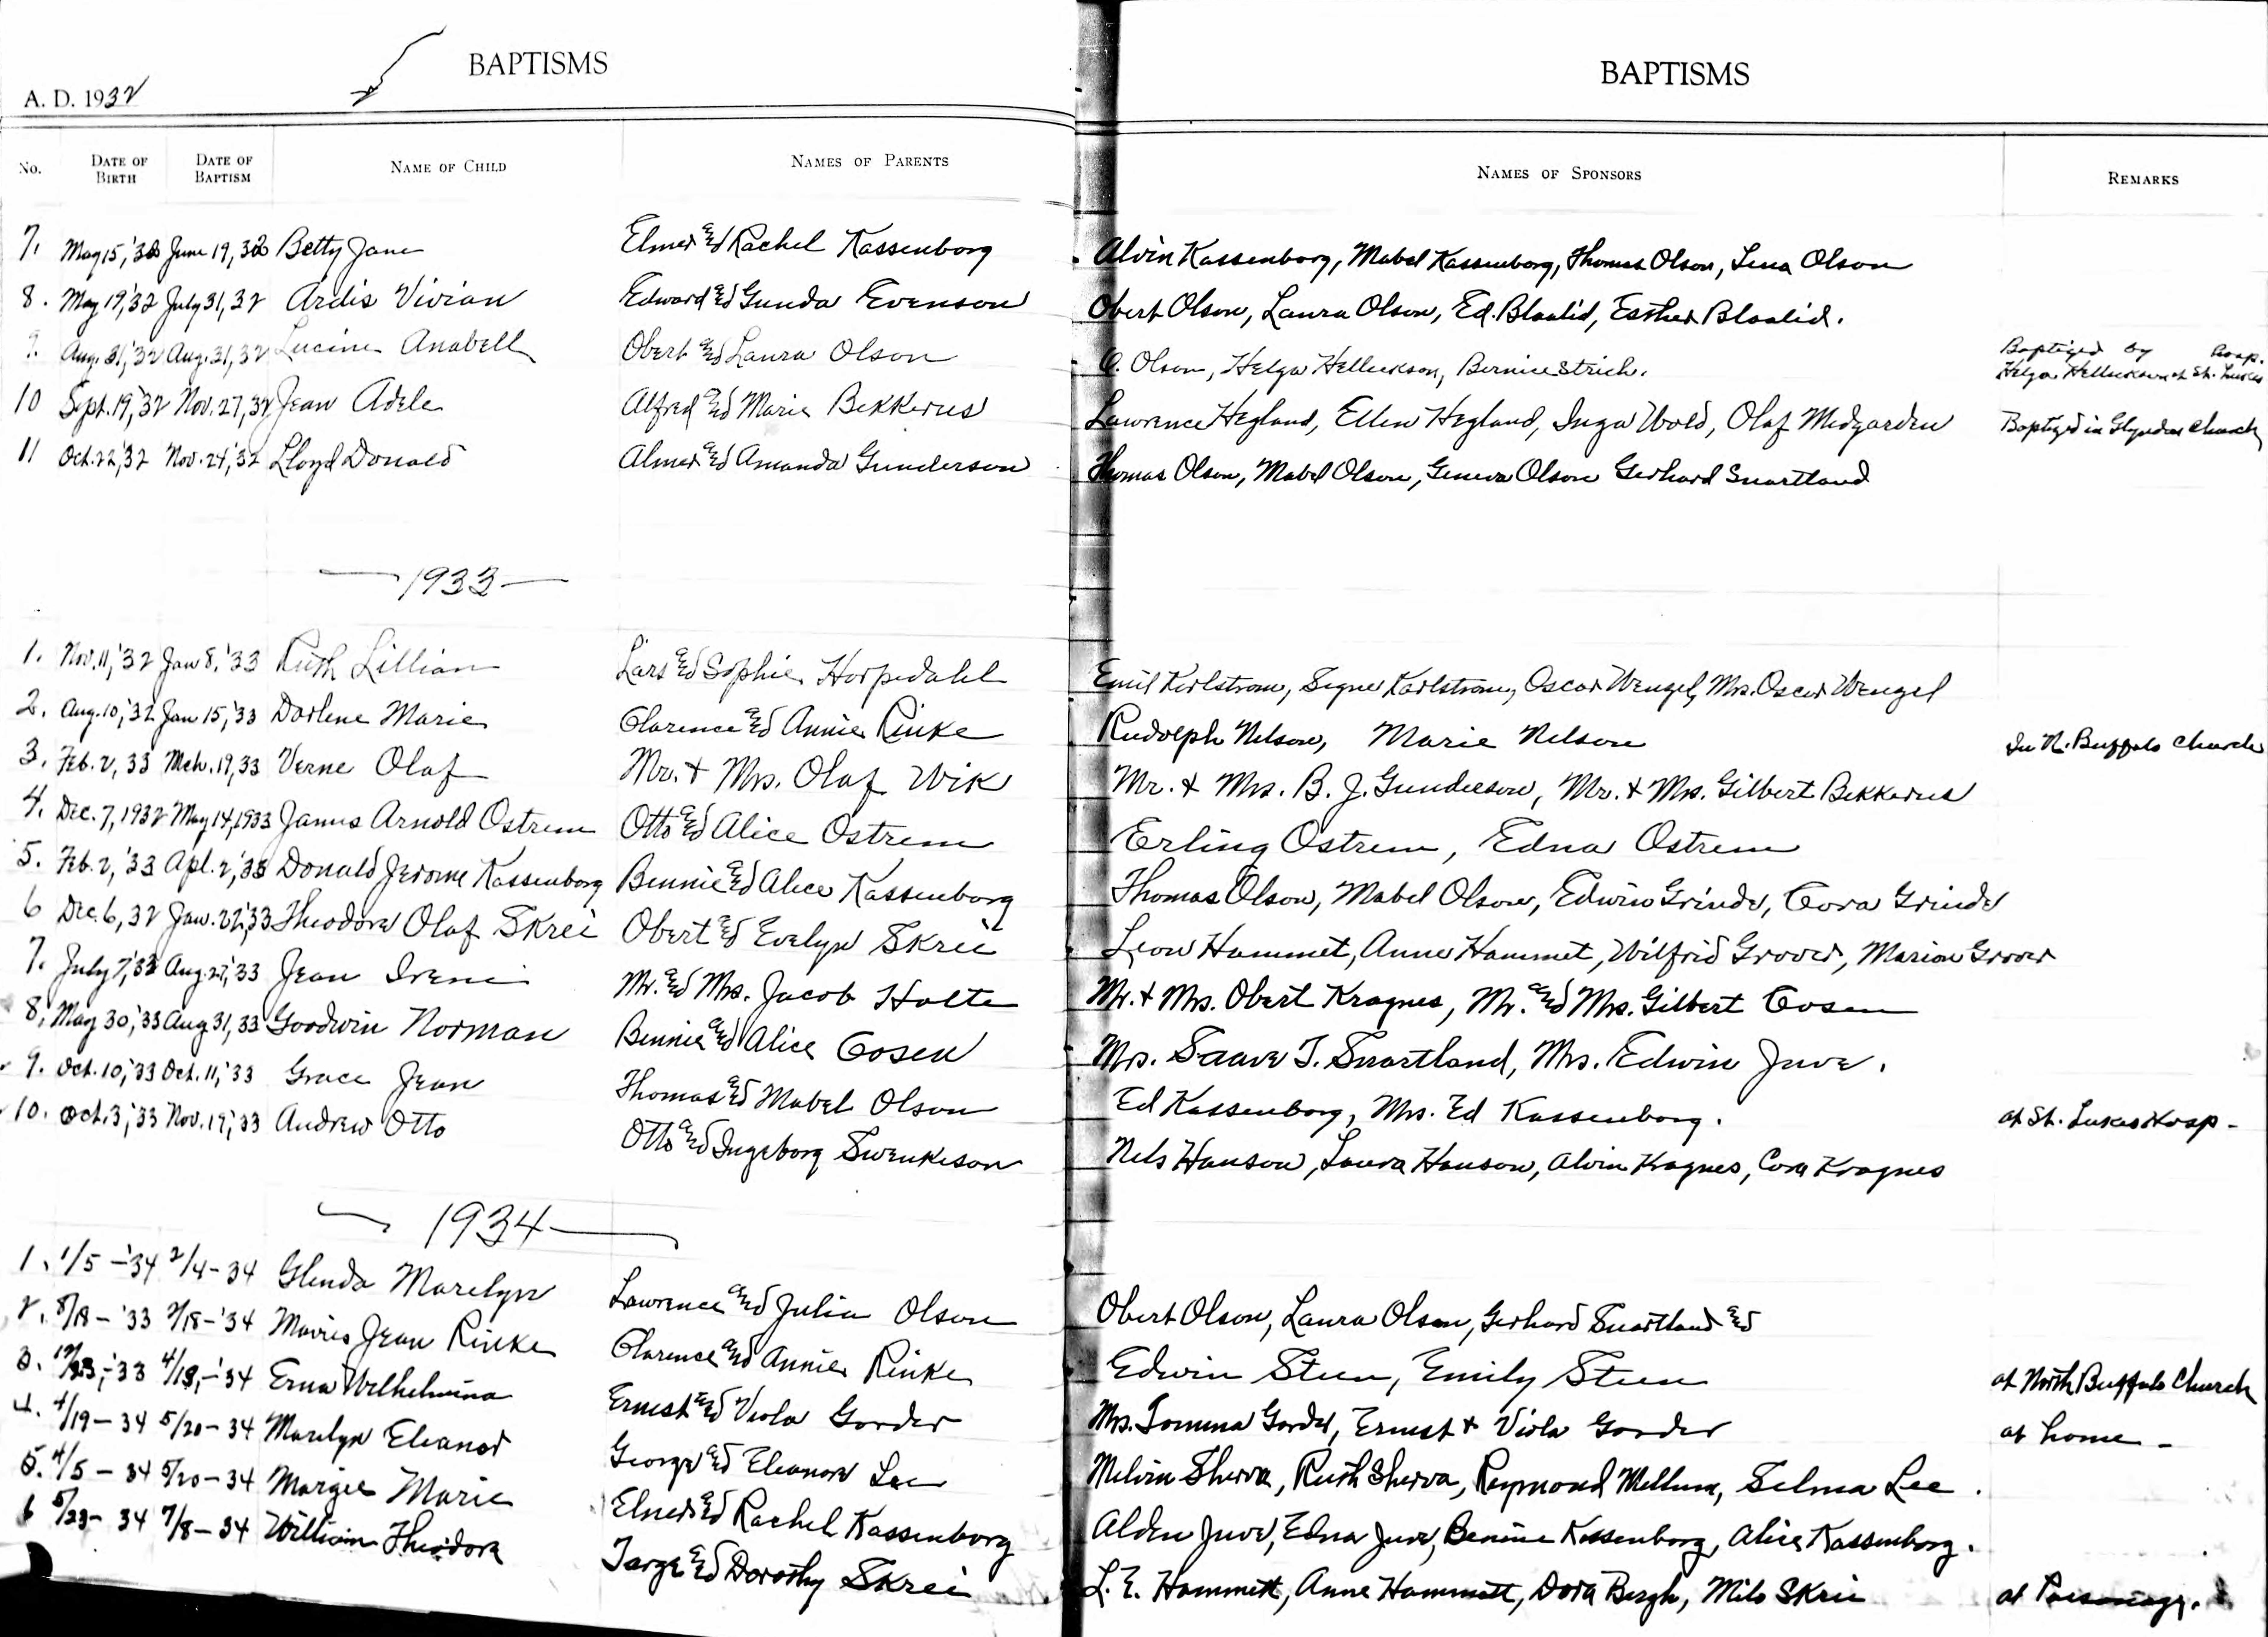 BAPTISMS
A. D. 1932
No. DATE OF BIRTH DATE OF BAPTISM NAME OF CHILD NAMES OF PARENTS
7. May 15, '32 June 19, 32 Betty Jane Elmer and Rachel Kassenborg
8. May 19, '32 July 31, 32 Ardis Vivian Edward and Gunda Evenson
9. Aug. 31, '32 Aug. 31, 32 Lucine Anabell Obert and Laura Olson
10 Sept. 19, '32 Nov. 27, 32 Jean Adele Alfred and Marie Bekkerus
11 Oct. 22, '32 Nov. 24, '32 Lloyd Donald Almer and Amanda Gunderson
1933
1. Nov. 11, '32 Jan 8, '33 Ruth Lillian Lars and Sophie Horpedahl
2. Aug. 10, '32 Jan 15, '33 Darlene Marie Clarence and Annie Rinke
3. Feb. 2, 33 Mch. 19, 33 Verne Olaf Mr. + Mrs. Olaf Wik
4. Dec. 7, 1932 May 14, 1933 James Arnold Ostrem Otto and Alice Ostrem
5. Feb. 2, '33 Apl. 2, '33 Donald Jerome Kassenborg Bennie and Alice Kassenborg
6 Dec. 6, 32 Jan. 22, '33 Theodore Olaf Skrei Obert and Evelyn Skrei
7. July 7, '33 Aug. 27, '33 Jean Irene Mr. and Mrs. Jacob Holte
8. May 30, '33 Aug 31, 33 Goodwin Norman Bennie and Alice Cosen
9. Oct. 10, '33 Oct. 11, '33 Grace Jean Thomas and Mabel Olson
10. Oct. 3, '33 Nov. 19, '33 Andrew Otto Otto and Ingeborg Swenkeson
1934
1. 1/5 - '34 2/4 - 34 Glenda Marelyn Lawrence and Julia Olson
2. 8/18 - '33 2/18 - '34 Mavies Jean Rinke Clarence and Annie Rinke
3. 12/23, - '33 4/13, - '34 Erna Wilhelmina Ernest and Viola Gorder
4. 4/19 - 34 5/20 - 34 Marilyn Eleanor George and Eleanor Lee
5. 4/5 - 34 5/20 - 34 Margie Marie Elmer and Rachel Kassenborg
6 5/23 - 34 7/8 - 34 William Theodore Targe and Dorothy Skrei
BAPTISMS
NAMES OF SPONSORS REMARKS
Alvin Kassenborg, Mabel Kassenborg, Thomas Olson, Lena Olson
Obert Olson, Laura Olson, Ed. Blaalid, Esther Blaalid.
O. Olson, Helga Hellickson, Bernice Strich. Baptized by Helga Hellickson at St. Lukes Hosp.
Lawrence Hegland, Ellen Hegland, Inga Wold, Olaf Midgarden Baptized in Glyndon Church
Thomas Olson, Mabel Olson, Geneva Olson Gerhard Snartland
Emil Karlstrom, Signe Karlstrom, Oscar Wengel, Mrs. Oscar Wengel
Rudolph Nelson, Marie Nelson In N. Buffalo Church
Mr. + Mrs. B. J. Gunderson, Mr. + Mrs. Gilbert Bekkerus
Erling Ostrem, Edna Ostrem
Thomas Olson, Mabel Olson, Edwin Grinde, Cora Grinde
Leon Hammet, Anne Hammet, Wilfrid Grover, Marion Grover
Mr. + Mrs. Obert Kragnes, Mr. and Mrs. Gilbert Cosen
Mrs. Saave T. Snartland, Mrs. Edwin Juve.
Ed Kassenborg, Mrs. Ed Kassenborg. at St. Lukes Hosp -
Nels Hanson, Laura Hanson, Alvin Kragnes, Cora Kragnes
Obert Olson, Laura Olson, Gerhard Snartland and
Edwin Steen, Emily Steen at North Buffalo Church
Mrs. Tomina Gorder, Ernest + Viola Gorder at home -
Melvin Sherva, Ruth Sherva, Raymond Mellum, Selma Lee.
Alden Juve, Edna Juve, Bennie Kassenborg, Alice Kassenborg.
L. E. Hammett, Anne Hammett, Dora Bergh, Milo Skrei at Parsonage.